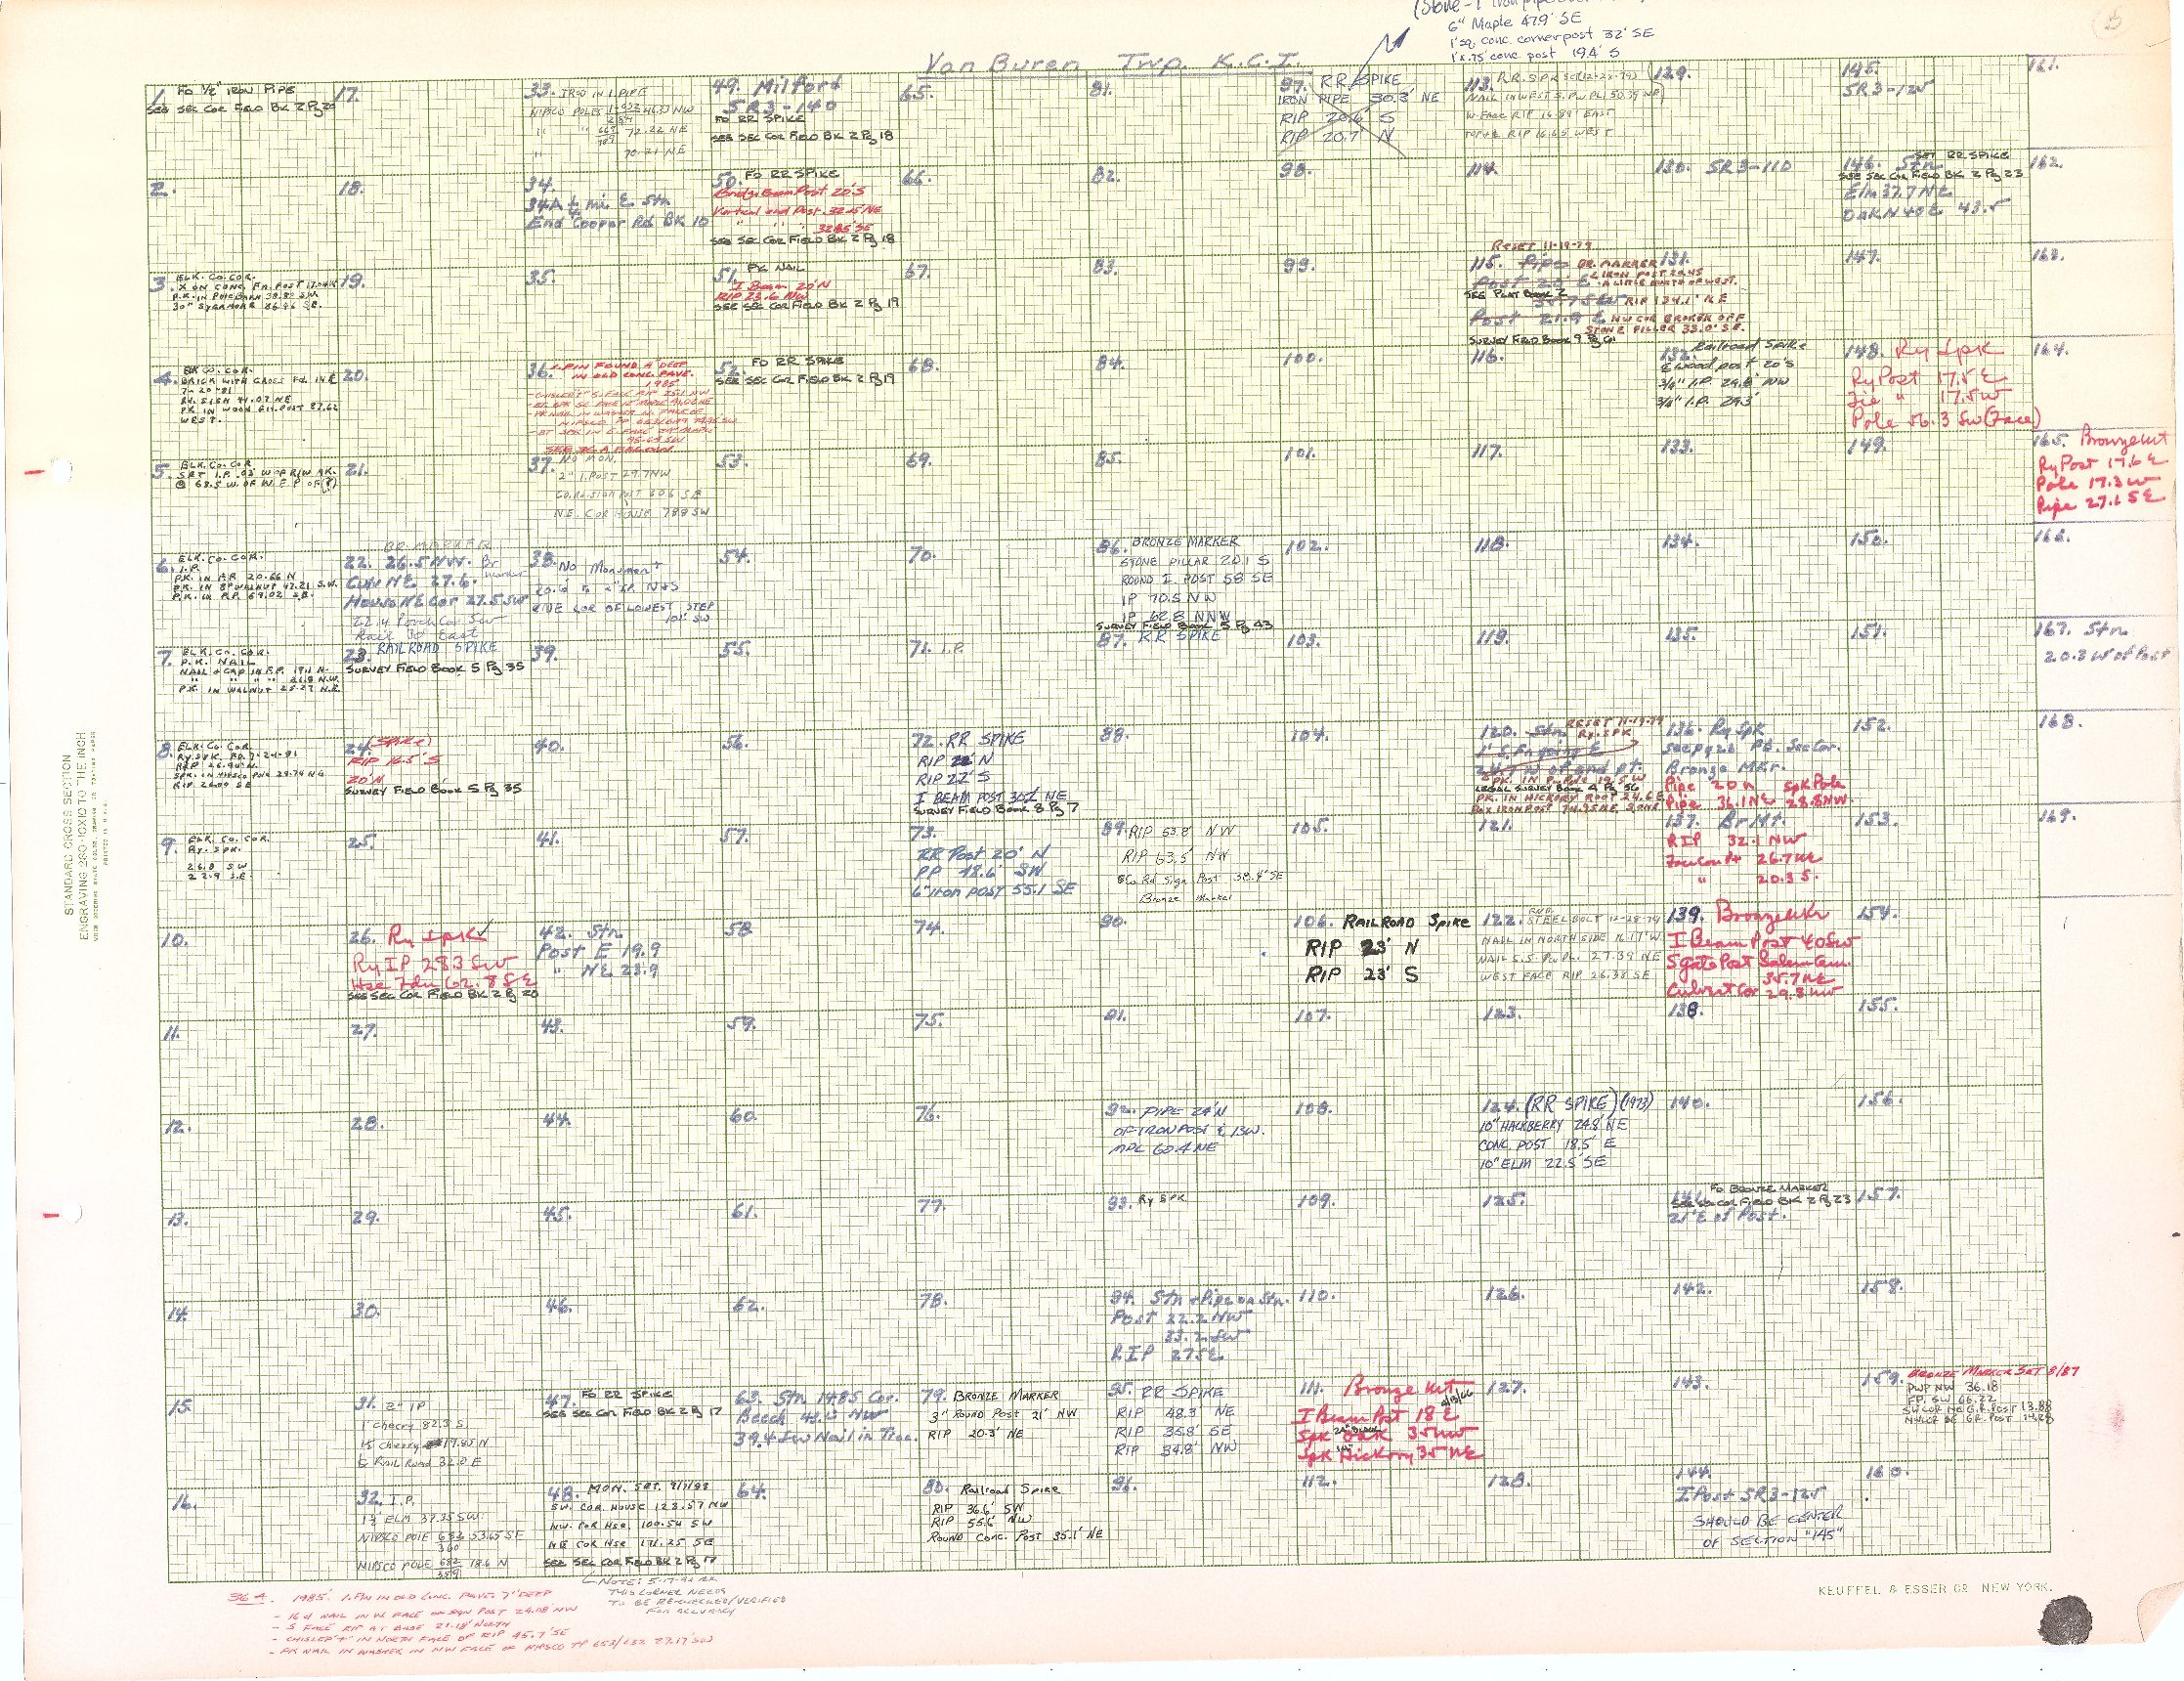 6" Maple 47.9' SE
1' sq. conc. corner post 32' SE
1'x.75' conc. post 19.4' S
Van Buren Twp. K.C.I.
1. FO 1/2" IRON PIPE
SEE SEC COR FIELD BK 2 Pg 20
2.
3. ELK. CO. COR.
X ON CONC. FN. POST
P.K. IN POLE BARN 38.89 S.W.
30" SYCAMORE 86.46 S.E.
4. ELK CO. COR.
BRICK WITH CROSS Fd. IN E
7-20-81
RD. SIGN 41.07 NE
PK. IN WOOD POST 87.62
WEST.
5. ELK. CO. COR.
SET I.P. .03' W OF R/W MK.
@ 68.5 W. OF W. E.P. OF (?)
6. ELK. CO. COR.
I.P.
P.K. IN P.P. 20.66 N
P.K. IN 8" WALNUT 47.21 S.W.
P.K. IN P.P. 69.02 S.E.
7. ELK. CO. COR.
P.K. NAIL
NAIL & CAP IN P.P. 19.1 N.
" " " " 26.8 N.W.
PK. IN WALNUT 25.27 N.E.
8. ELK. CO. COR.
RY. SPK. FD. 7-24-81
RIP 26.90 N.
SPK. IN NIPSCO POLE 29.74 NE
RIP 26.09 SE
9. ELK. CO. COR.
RY. SPK.
26.8 SW
22.9 S.E.
10.
11.
12.
13.
14.
15.
16.
17.
18.
19.
20.
21.
BR. MARKER
22. 26.5 NW. Br
Marker
Culv NE 27.6.
House NE Cor 27.5 SW
22.4 Porch Cor SW
Rail 30' East
23. RAILROAD SPIKE
SURVEY FIELD BOOK 5 Pg 35
24. (Spike)
RIP 16.5' S
20' N
SURVEY FIELD BOOK 5 Pg 35
25.
26. Ry Spk ✓
Ry IP 28.3 SW
Hse Fdn 62.8 SE
SEE SEC COR FIELD BK 2 Pg 20
27.
28.
29.
30.
31. 2" IP
1" Cherry 82.3 S
15 Cherry 17.80 N
€ Rail Road 32.0 E
32. I.P.
1½' ELM 37.35 SW.
NIPSCO POLE 682/360 53.65 SE
NIPSCO POLE 682/359 18.6 N
33. IRSD IN I. PIPE
NIPSCO POLES 46.33 NW
" " 72.22 NE
" 70.21 NE
34.
34A ½ mi E Stn
End Cooper Rd BK 10
35.
36. I. PIN FOUND 4" DEEP
IN OLD CONC. PAVE.
1985
37. NO MON.
2" I. POST - 29.7 NW
CO. RD. SIGN POST 60.6 SE
N.E. COR HOUSE 78.8 SW
38. No Monument
20.6' to 2" I.P. N & S
NE COR OF LOWEST STEP
101' SW
39.
40.
41.
42. Stn
Post E 19.9
" NE 23.9
43.
44.
45.
46.
47. FO RR SPIKE
SEE SEC COR FIELD BK 2 Pg 17
48. MON. SET. 9/7/88
SW. COR. HOUSE 123.57 NW
NW. COR HSE. 100.54 SW
NE COR HSE 171.25 SE
SEE SEC COR FIELD BK 2 Pg 17
NOTE: 5-17-92
THIS CORNER NEEDS
TO BE RECHECKED/VERIFIED
FOR ACCURACY
49. Milford
SR3-140
FO RR SPIKE
SEE SEC COR FIELD BK 2 Pg 18
50. FO RR SPIKE
Bridge Beam Post 20' S
Vertical end Post 32.15' NE
" " " 32.85' SE
SEE SEC COR FIELD BK 2 Pg 18
51. PK NAIL
I Beam 20' N
RIP 23.6 NW
SEE SEC COR FIELD BK 2 Pg 19
52. FO RR SPIKE
SEE SEC COR FIELD BK 2 Pg 19
53.
54.
55.
56.
57.
58
59.
60.
61.
62.
63. Stn 1485 Cor.
Beech 43.5 NW
39.4 SW Nail in Tree.
64.
65.
66.
67.
68.
69.
70.
71. I.P.
72. RR SPIKE
RIP 22' N
RIP 22' S
I BEAM POST 30.2 NE
SURVEY FIELD BOOK 8 Pg 7
73.
RR Post 20' N
PP 48.6' SW
6" iron post 55.1 SE
74.
75.
76.
77.
78.
79. BRONZE MARKER
3" ROUND POST 21' NW
RIP 20.3' NE
80. Railroad Spike
RIP 36.6' SW
RIP 55.6' NW
ROUND CONC. POST 35.1' NE
81.
82.
83.
84.
85.
86. BRONZE MARKER
STONE PILLAR 20.1 S
ROUND I. POST 58 SE
IP 70.5 NW
IP 62.8 NNW
SURVEY FIELD BOOK 5 Pg 43
87. RR SPIKE
88.
89. RIP 63.8' NW
RIP 63.5' NW
Co Rd Sign Post 38.4' SE
Bronze Marker
90.
91.
92. PIPE 24' N
OF IRON POST & 13 W.
MPL 60.4 NE
93. Ry SPK
94. Stn & Pipe on Stn.
Post 22.2 NW
33.2 SW
RIP 27 SE
95. RR SPIKE
RIP 48.3' NE
RIP 35.8' SE
RIP 34.8' NW
96.
97. RR SPIKE
IRON PIPE 30.3' NE
RIP 20.6' S
RIP 20.7' N
98.
99.
100.
101.
102.
103.
104.
105.
106. RAILROAD SPIKE
RIP 23' N
RIP 23' S
107.
108.
109.
110.
111. Bronze Mkt
4/13/66
I Beam Post 18 E
Spk Oak 35 NW
Spk Hickory 35 NE
112.
113. R.R. SPK SET (12-22-79)
NAIL IN WEST S. PW PL. 50.39 NE
W-FACE RIP 16.89' EAST
TOP & RIP 16.65 WEST
114.
RESET 11-19-79
115. Pipe BR. MARKER
SEE PLAT BOOK 2
RIP 134.1' NE
Post 21.9 E NW COR BROKEN OFF
STONE PILLER 33.0' SE.
SURVEY FIELD BOOK 9 Pg 61
116.
117.
118.
119.
120. Stn RESET 11-19-79
Ry. SPK
SPK. IN PW POLE 19.5 W
LEGAL SURVEY BOOK 4 Pg 56
PK. IN HICKORY ROOT 24.6 E
121.
122. FND. STEEL BOLT 12-28-79
NAIL IN NORTH SIDE 16.17' W
NAIL S.S. PW PL. 27.39 NE
WEST FACE RIP. 26.38 SE
123.
124. (RR SPIKE) (1973)
10" HACKBERRY 24.8' NE
CONC. POST 18.5' E
10" ELM 22.5' SE
125.
126.
127.
128.
129.
130. SR3-110
131.
132. Railroad Spike
€ wood post 20' S
3/4" I.P. 29.8' NW
3/4" I.P. 29.3'
133.
134.
135.
136. Ry Spk
See pg 26 Pt. Sec Cor.
Bronze Mkr.
Pipe 20 N Spk Pole
Pipe 36.1 NE 28.8 NW
137. Br Mt.
RIP 32.1 NW
Fce Con Pt 26.7 NE
" 20.3 S.
139. Bronze Mkr
I Beam Post 40 SW
S gate Post Salem Cem.
35.7 NE
Culvert Cor 29.8 NW
138.
140.
FO BRONZE MARKER
SEE SEC COR FIELD BK 2 Pg 23
21' E of Post.
142.
143.
144.
I Post SR3-125
SHOULD BE CENTER
OF SECTION "145"
145.
SR3-125
146. Stn SET RR SPIKE
SEE SEC COR FIELD BK 2 Pg 23
Elm 37.7 NE
Oak N 40 E 43.5
147.
148. Ry Spk
Ry Post 17.5 E
Tie " 17.5 W
Pole 56.3 SW (Face)
149.
150.
151.
152.
153.
154.
155.
156.
157.
158.
159. BRONZE MARKER SET 8/87
PWP NW 36.18
PP. SW 66.22
SW COR NE G.R. POST 13.88
NW COR SE GR. POST 14.28
160.
161.
162.
163.
164.
165. Bronze Mkt
Ry Post 17.6 E
Pole 17.3 W
Pipe 27.1 SE
166.
167. Stn
20.3 W of Post
168.
169.
36A. 1985. I. PIN IN OLD CONC. PAVE. 7" DEEP
- 16d NAIL IN W. FACE OF SIGN POST 24.08' NW
- S FACE RIP AT BASE 21.18' NORTH
- CHISLED "+" IN NORTH FACE OF RIP 45.7' SE
- PK NAIL IN WASHER IN NW FACE OF NIPSCO PP 653/632 27.17' SW
STANDARD CROSS SECTION
ENGRAVING 280-10X10 TO THE INCH
KEUFFEL & ESSER CO. NEW YORK.